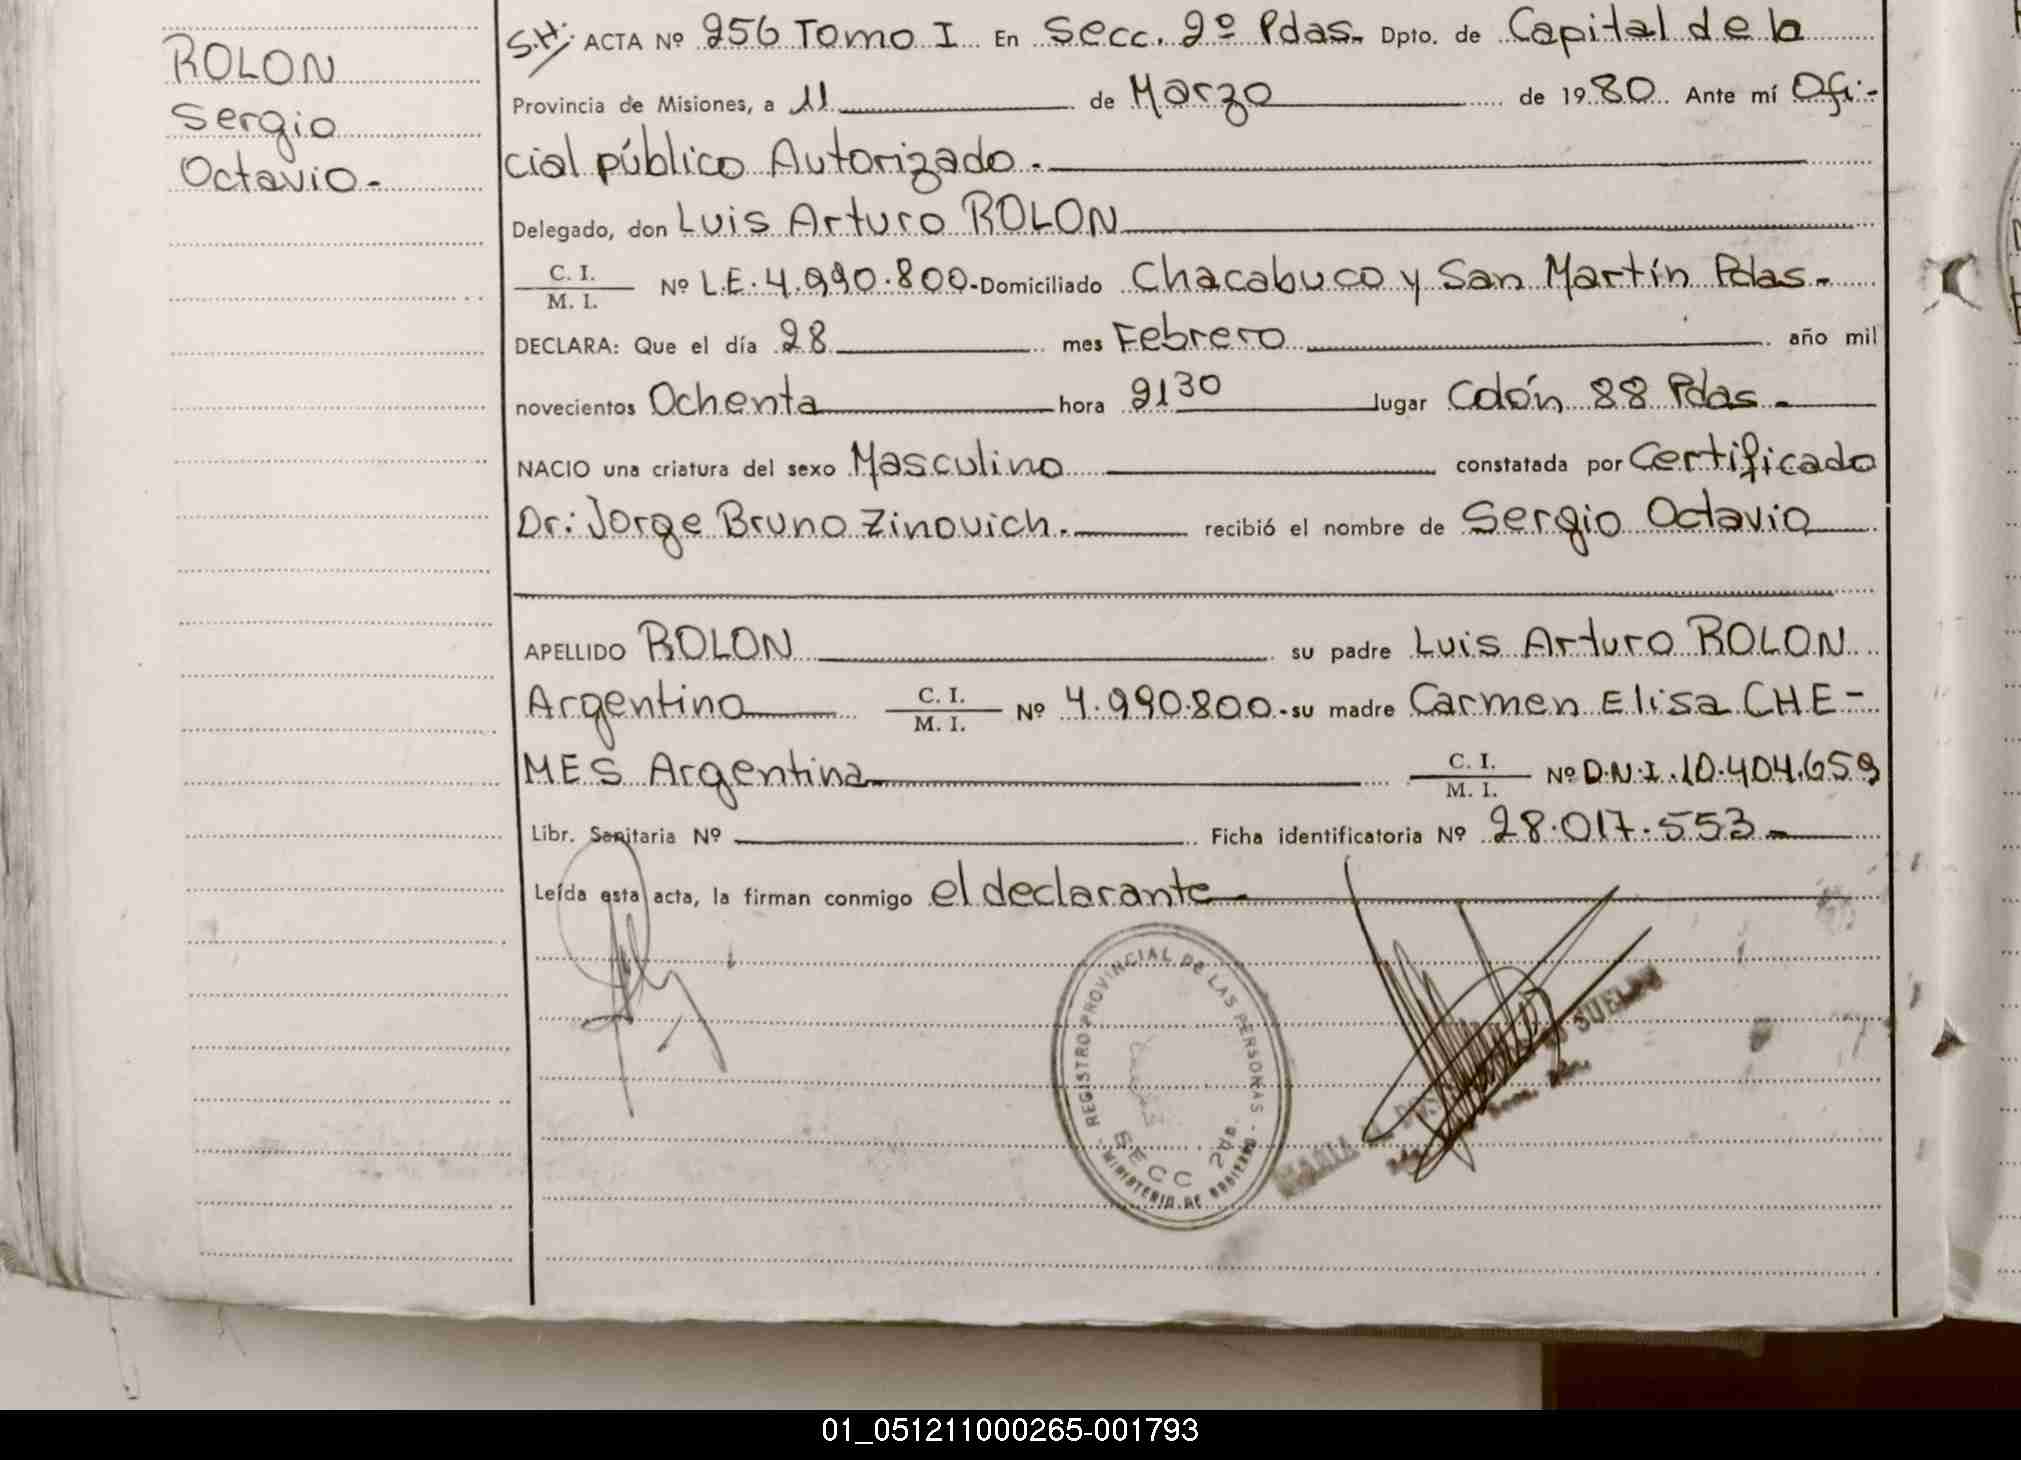 ROLON
Sergio
Octavio.-
S.H: ACTA Nº 256 Tomo I En Secc. 2º Pdas. Dpto. de Capital de la
Provincia de Misiones, a 11 de Marzo de 1980 Ante mí Ofi-
cial público Autorizado.-
Delegado, don Luis Arturo ROLON
C. I.
M. I.
Nº L.E. 4.990.800.- Domiciliado Chacabuco y San Martín Pdas.-
DECLARA: Que el día 28 mes Febrero año mil
novecientos Ochenta hora 21 30 lugar Colón 88 Pdas.-
NACIO una criatura del sexo Masculino constatada por Certificado
Dr: Jorge Bruno Zinovich.- recibió el nombre de Sergio Octavio
APELLIDO ROLON su padre Luis Arturo ROLON
Argentino C. I. M. I. Nº 4.990.800.- su madre Carmen Elisa CHE-
MES Argentina C. I. M. I. Nº D.N.I. 10.404.659
Libr. Sanitaria Nº Ficha identificatoria Nº 28.017.553.-
Leída esta acta, la firman conmigo el declarante.-
REGISTRO PROVINCIAL DE LAS PERSONAS
SECC 2da.
MINISTERIO DE GOBIERNO
01_051211000265-001793